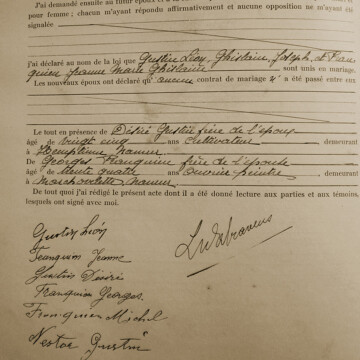 J'ai demandé ensuite au futur époux et à la
pour femme ; chacun m'ayant répondu affirmativement et aucune opposition ne m'ayant été
signalée
j'ai déclaré au nom de la loi que Gustin Léon, Ghislain, Joseph, et Fran
quin Jeanne Marie Ghislaine sont unis en mariage.
Les nouveaux époux ont déclaré qu'aucun contrat de mariage n'a été passé entre eux
Le tout en présence de Désiré Gustin frère de l'époux
âgé de vingt cinq ans Cultivateur demeurant
à Hemptinne Namur
De Georges Franquin frère de l'épouse
âgé de trente quatre ans ouvrier peintre demeurant
à Marchovelette Namur
De tout quoi j'ai rédigé le présent acte dont il a été donné lecture aux parties et aux témoins,
lesquels ont signé avec moi.
Gustin Léon
Franquin Jeanne
Gustin Désiré
Franquin Georges.
Franquin Michel
Nestor Gustin